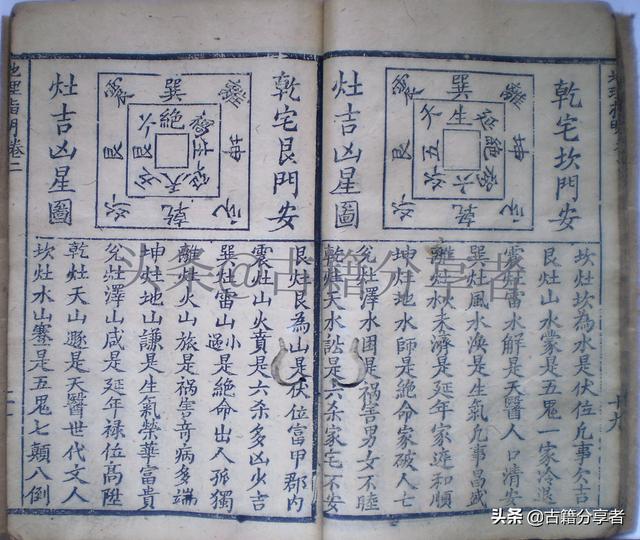 乾宅坎門安
灶吉凶星圖
巽
離
坤
乾
艮
生
天
五
六
絕
坎灶坎為水是伏位凣事欠吉
艮灶山水蒙是五鬼一家冷退
震灶雷水解是天醫人口清安
巽灶風水渙是生氣凣事昌盛
離灶火未濟是延年家和順
坤灶地水師是絕命家破人亡
兊灶澤水困是禍害男女不睦
乾灶天水訟是六杀家宅不安
十九
乾宅艮門安
灶吉凶星圖
巽
離
坤
乾
艮
絕
六
天
五
艮灶艮為山是伏位富甲郡內
震灶山火賁是六杀多凶火吉
巽灶雷山小過是絕命出入孤獨
離灶火山旅是禍害竒病多端
坤灶地山謙是生氣榮華富貴
兊灶澤山咸是延年祿位高陞
乾灶天山遯是天醫世代文人
坎灶水山蹇是五鬼七顛八倒
地理指明卷二
头条@古籍分享者
头条 @古籍分享者